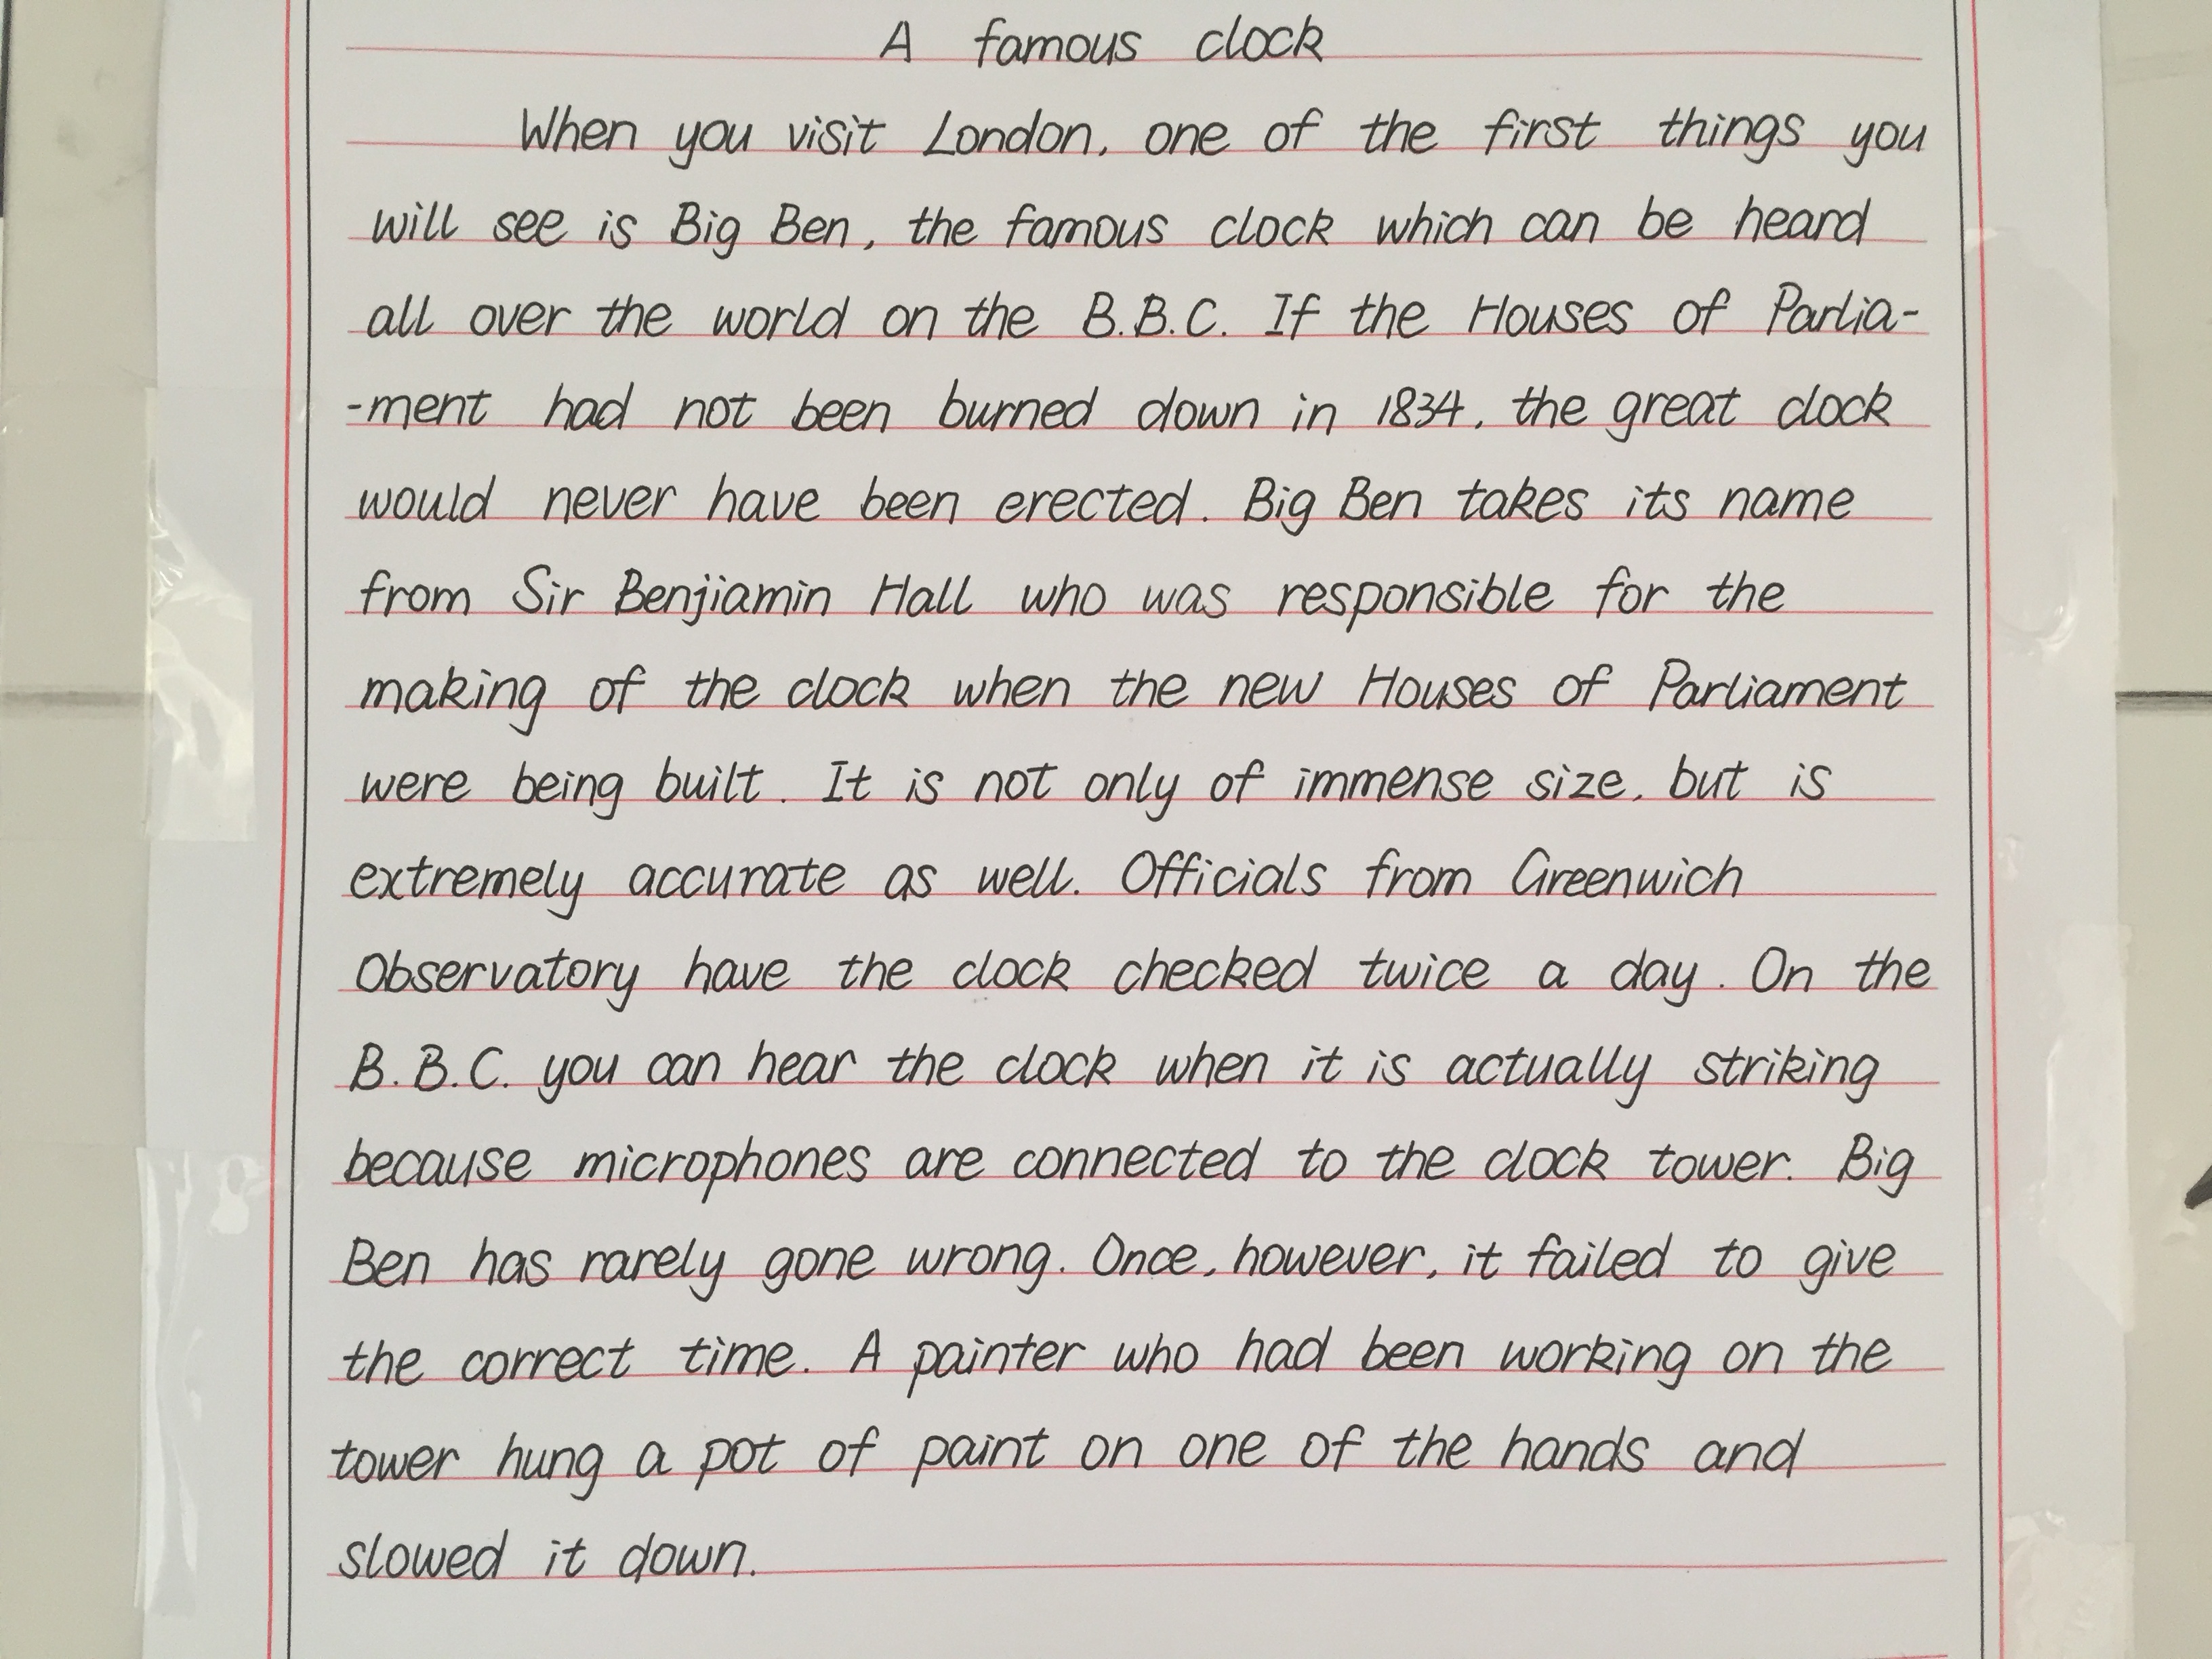 A famous clock
When you visit London, one of the first things you
will see is Big Ben, the famous clock which can be heard
all over the world on the B.B.C. If the Houses of Parlia-
-ment had not been burned down in 1834, the great clock
would never have been erected. Big Ben takes its name
from Sir Benjiamin Hall who was responsible for the
making of the clock when the new Houses of Parliament
were being built. It is not only of immense size, but is
extremely accurate as well. Officials from Greenwich
Observatory have the clock checked twice a day. On the
B.B.C. you can hear the clock when it is actually striking
because microphones are connected to the clock tower. Big
Ben has rarely gone wrong. Once, however, it failed to give
the correct time. A painter who had been working on the
tower hung a pot of paint on one of the hands and
slowed it down.